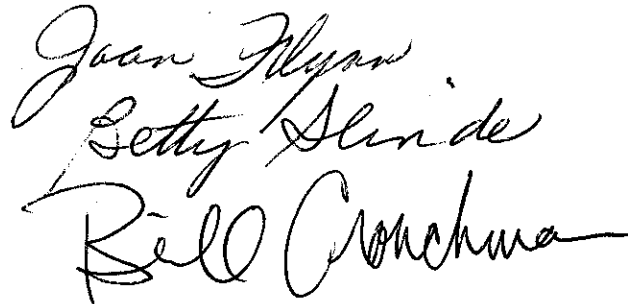 Joan Flynn
Betty Slinde
Bill Crouchman